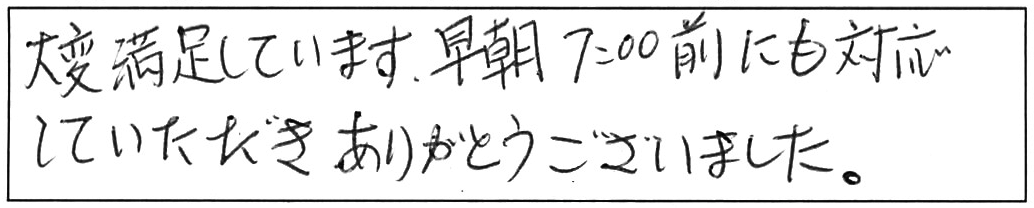 大変満足しています.早朝7:00前にも対応
していただきありがとうございました。